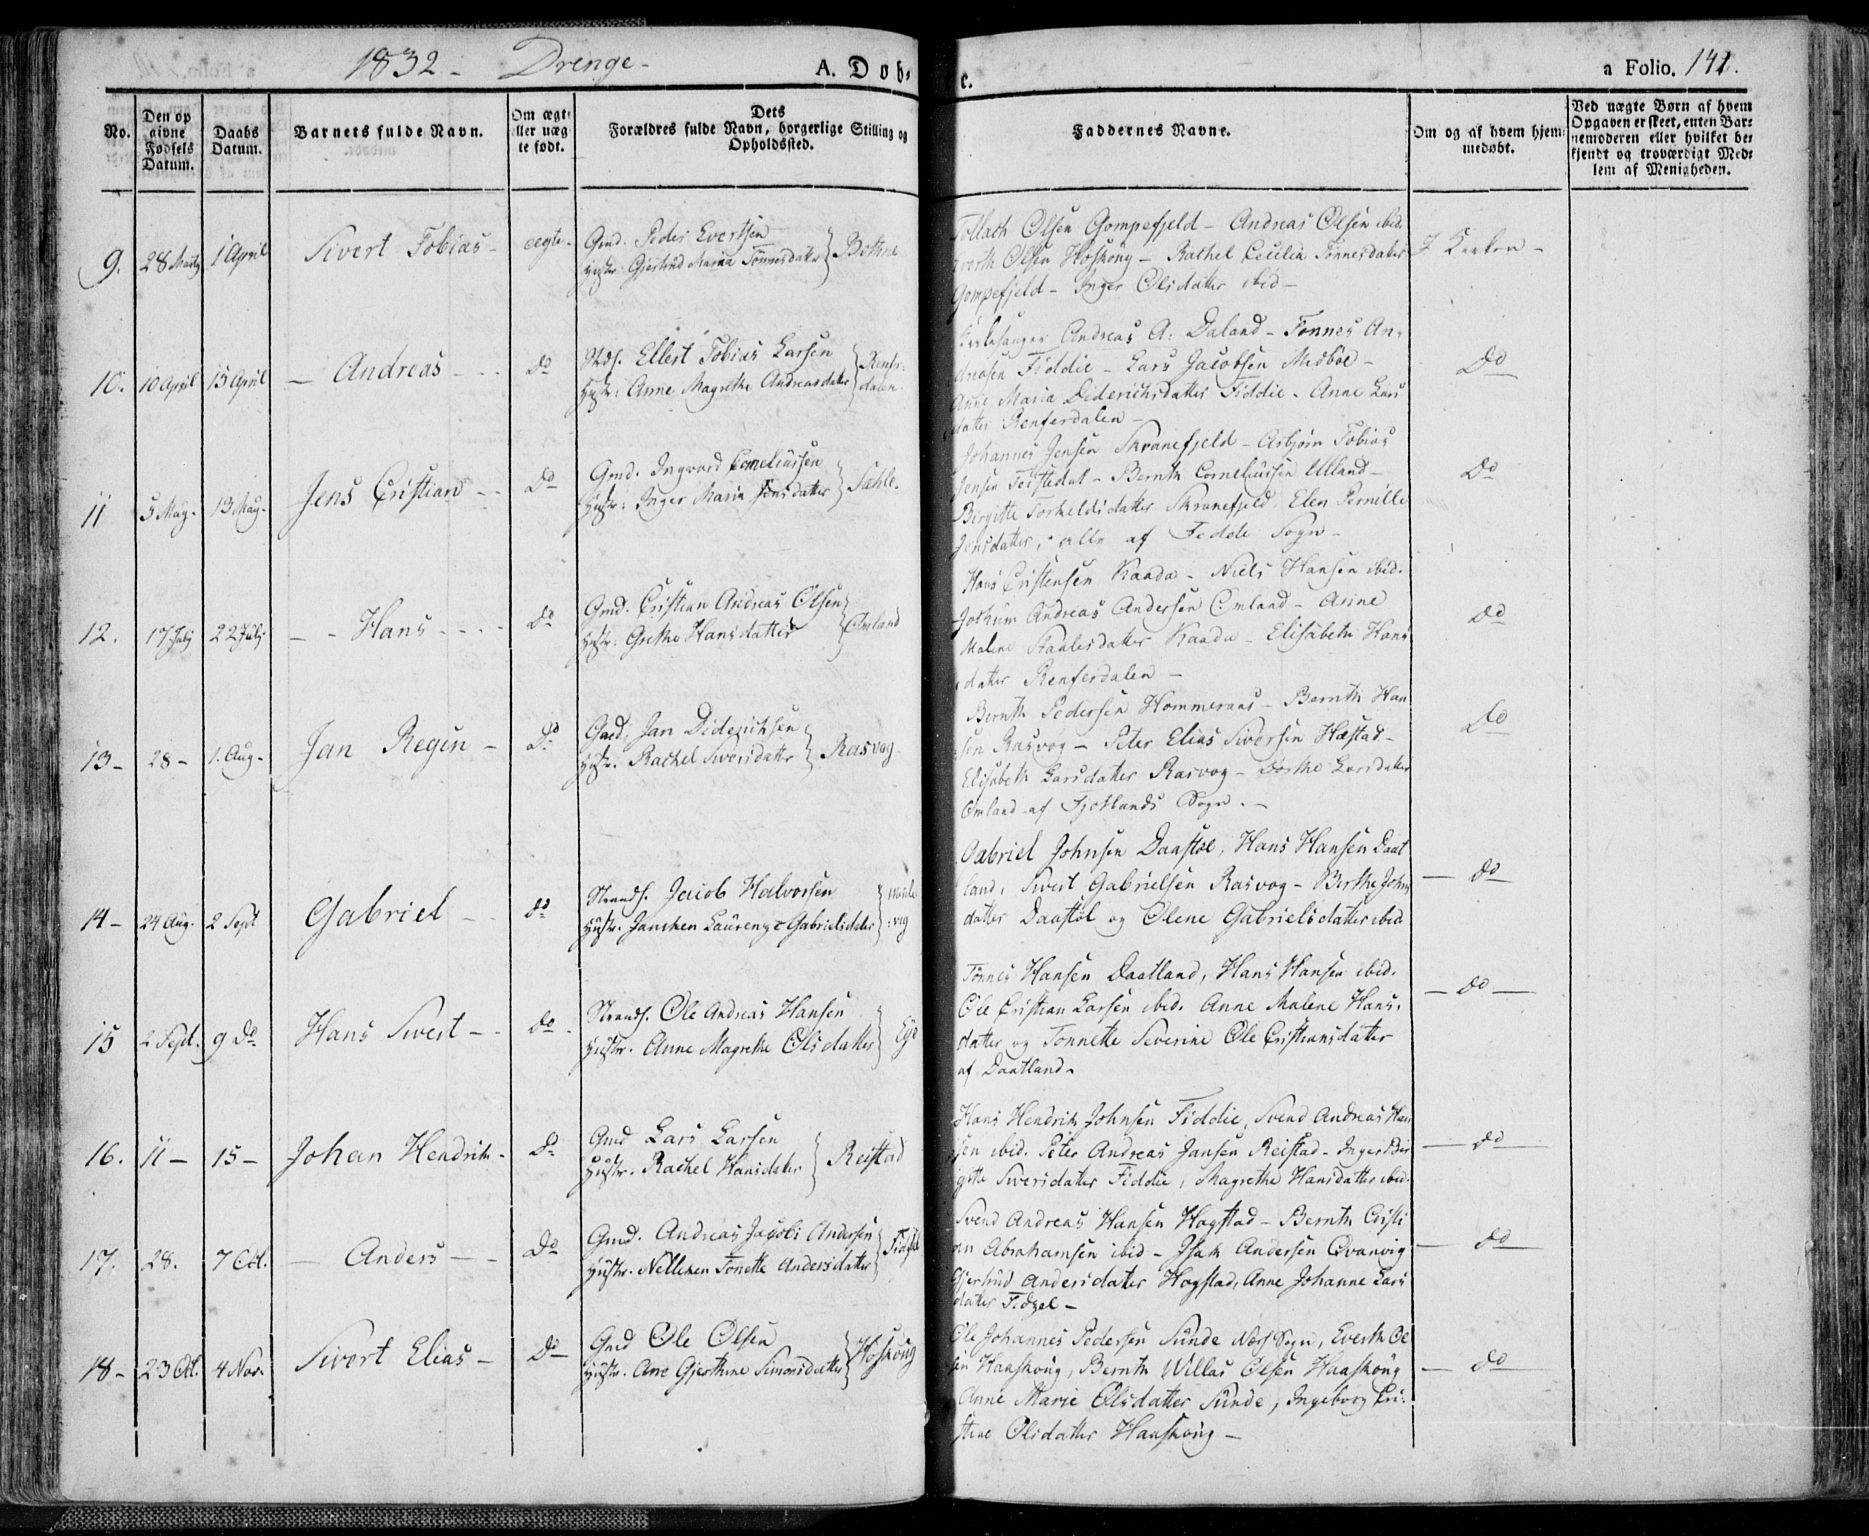 1832 - Drenge -
A. Dob-
e.
a Folio. 141.
No.
Den op
givne
Fødsels
Datum.
Daabs
Datum.
Barnets fulde Navn.
Om ægt-
ller uæg
te født.
Dets
Forældres fulde Navn, borgerlige Stilling og
Opholdssted.
Faddernes Navne.
Om og af hvem hjem-
medøbt.
Ved uægte Børn af hvem
Opgaven er skeet, enten Bar-
nemoderen eller hvilket be-
kjendt og troværdigt Med-
lem af Menigheden.
9. 28 Marts 1 April Sivert Tobias - ægte - Gmd. Peder Evertsen
Hustr: Gjertrud Maria Tønnesdatter } Bothne
Tollach Olsen Gompefjeld - Andreas Olsen ibid.
Olsen Høskong - Rachel Cecilia Tønnesdatter
Gompefjeld - Inger Olsdatter ibid -
I Kirken -
10. 10 April 15 April - Andreas - - Do Strds. Ellert Tobias Larsen
Hustr: Anne Magrethe Andreasdatter } Renfer-
dalen.
Kirkesanger Andreas A: Daland - Tønnes An-
dreasen Fiddie - Lars Jacobsen Medbøe -
Anne Maria Diderichsdatter Fiddie - Anne Lars
datter Renferdalen -
Do
11 5 May - 13 May - Jens Cristian - - Do Gmd. Ingvard Corneliussen
Hustr: Inger Maria Jensdatter } Sahle.
Johannes Jensen Skranefjeld - Asbjørn Tobias
Jensen Feistedal - Bernth Corneliussen Ulland -
Birgitte Torkeldsdatter Skranefjeld. Elen Pernille
Jensdatter, alle af Fedde Sogn -
Do
12. 17 Julj 22 Julj. - - Hans - - - - Do Gmd. Cristian Andreas Olsen
Hustr. Grethe Hansdatter } Omland
Hans Cristensen Kaada - Niels Hansen ibid.
Jothum Andreas Andersen Omland - Anne
Malene Staalesdatter Kaada - Elisabeth Hans
datter Renferdalen -
Do
13 - 28 - 1. Aug - Jan Regin - Do Gmd. Jan Diderichsen
Hustr. Rachel Siversdattr } Rasvog -
Bernth Pedersen Hommeraas - Bernth Han
sen Rasvog - Peter Elias Siversen Hæstad -
Elisabeth Larsdatter Rasvog - Dorthe Larsdatter
Omland af Fjotlands Sogn. -
Do
14 - 24 Aug. 2 Sept Gabriel - - do Strands. Jacob Halvorsen
Hustr. Janiken Laurentze Gabrielsdatter }
vig
Gabriel Johnsen Daastøl, Hans Hansen Daat
land, Sivert Gabrielsen Rasvog - Berthe John
datter Daastøl og Olene Gabrielsdatter ibid
- do
15 2 Sept. 9 Do Hans Sivert - - do - Strands. Ole Andreas Hansen
Hustr. Anne Magrethe Olsdatter } Eye
Tønnes Hansen Daatland, Hans Hansen ibid.
Ole Cristian Larsen ibid. Anne Malene Hans-
datter og Tonnette Severine Ole Cristiansdatter
af Daatland -
- do -
16. 11 - 15 - Johan Hendrik - Do Gmd Lars Larsen
Hustr. Rachel Hansdatter } Reistad
Hans Hendrik Johnsen Fiddie, Svend Andreas Han
sen ibid. Peter Andreas Jansen Reistad - Inger Bir
gitte Siversdatter Fiddie, Magrethe Hansdatter ibid.
- do -
17. 28. 7 Oct. - Anders - - Do Gmd. Andreas Jacobi Andersen
Hustr. Nelliken Tonette Andersdatter }
Svend Andreas Hansen Hogstad - Bernth Cristi
an Abrahamsen ibid - Isak Andersen Qvanvig
Gjertrud Andersdatter Hogstad, Anne Johanne Lars
datter Fidzel -
- do -
18 - 23 Oct. 4 Nov. Sivert Elias - Do - Gmd Ole Olsen
Hustr. Ane Gjerthine Simonsdatter } Høskoug
Ole Johannes Pedersen Sunde Næs Sogn, Everth Ol
sen Haaskoug, Bernth Willas Olsen Haaskoug
Anne Marie Olsdatter Sunde, Ingeborg Cri-
stine Olsdatter Haaskoug -
- do -